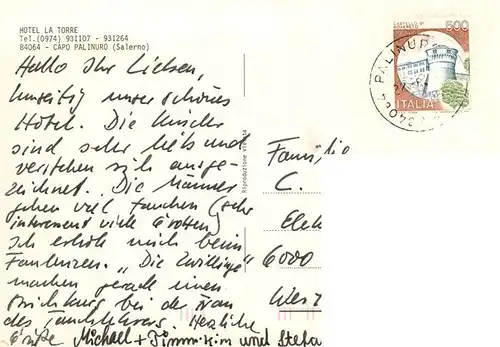 HOTEL LA TORRE
Tel.(0974) 931107 - 931264
84064 - CAPO PALINURO (Salerno)
Hallo Ihr Lieben,
umseitig unser schönes
Hotel. Die Kinder
sind sehr lieb und
verstehen sich ausge-
zeichnet. Die Männer
gehen viel tauchen (sehr
interessant viele Grotten)
Ich erhole mich beim
Faulenzen. „Die Zwillinge"
machen gerade einen
bei der Frau
des Tauchlehrers. Herzliche
Grüße Michael + Timm + Kim und Stefa
Riproduzione vietata
CASTELLO DI
ROVERETO
500
ITALIA
PALINUR
Familie
C.
Elek
6000